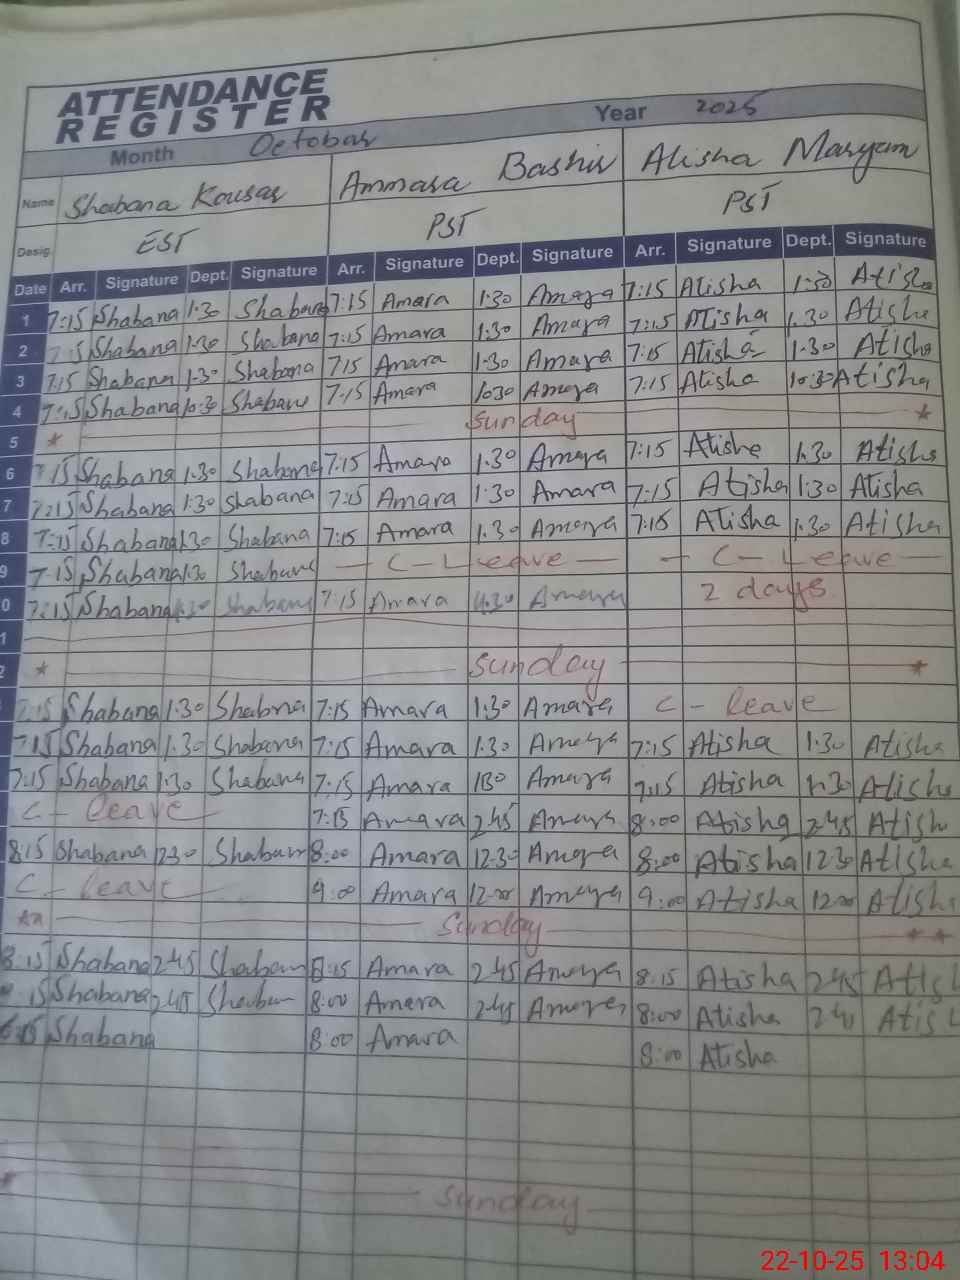 ATTENDANCE
REGISTER
Month Octobar Year 2025
Name Shabana Kousar Ammara Bashir Alisha Maryam
Desig. EST PST PST
Date Arr. Signature Dept. Signature Arr. Signature Dept. Signature Arr. Signature Dept. Signature
1 7:15 Shabana 1:30 Shabana 7:15 Amara 1:30 Amara 7:15 Alisha 1:30 Atisha
2 7:15 Shabana 1:30 Shabana 7:15 Amara 1:30 Amara 7:15 Alisha 1.30 Atisha
3 7:15 Shabana 1:30 Shabana 7:15 Amara 1:30 Amara 7:15 Alisha 1.30 Atisha
4 7:15 Shabana 10:30 Shabana 7:15 Amara 10:30 Amara 7:15 Alisha 10:30 Atisha
5 * Sunday *
6 7:15 Shabana 1.30 Shabana 7:15 Amara 1.30 Amara 7:15 Atisha 1.30 Atisha
7 7:15 Shabana 1:30 Shabana 7:15 Amara 1:30 Amara 7:15 Atisha 1:30 Atisha
8 7:15 Shabana 1:30 Shabana 7:15 Amara 1.30 Amara 7:15 Atisha 1.30 Atisha
9 7:15 Shabana 1:30 Shabana C-Leave C-Leave
0 7:15 Shabana 1:30 Shabana 7:15 Amara 1:30 Amara 2 days
1
2 * Sunday *
7:15 Shabana 1.30 Shabna 7:15 Amara 1:30 Amara C-leave
7:15 Shabana 1.30 Shabana 7:15 Amara 1.30 Amara 7:15 Atisha 1:30 Atisha
7:15 Shabana 1:30 Shabana 7:15 Amara 130 Amara 7:15 Atisha 1:30 Atisha
C-leave 7:15 Amara 2:45 Amara 8:00 Atisha 2:45 Atish
8:15 Shabana 1230 Shabana 8:00 Amara 12:30 Amara 8:00 Atisha 1230 Atisha
C-leave 9:00 Amara 12:00 Amara 9:00 Atisha 12:00 Atisha
** Sunday **
8:15 Shabana 2:45 Shabana 8:15 Amara 2:45 Amara 8:15 Atisha 2:45
Shabana 2:45 8:00 Amara 2:45 Amara 8:00 Atisha
Shabana 8:00 Amara 8:00 Atisha
* Sunday
22-10-25 13:04